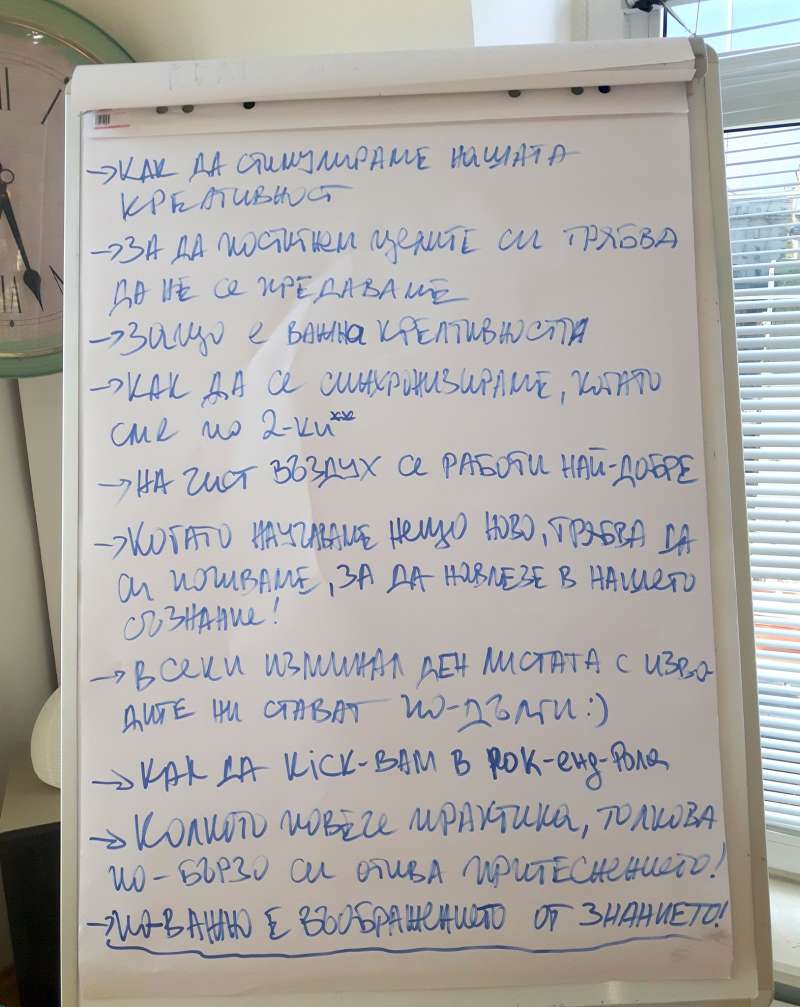 → КАК ДА СТИМУЛИРАМЕ НАШАТА
КРЕАТИВНОСТ
→ ЗА ДА ПОСТИГНЕМ ЦЕЛИТЕ СИ ТРЯБВА
ДА НЕ СЕ ПРЕДАВАМЕ
→ ЗАЩО Е ВАЖНА КРЕАТИВНОСТТА
→ КАК ДА СЕ СИНХРОНИЗИРАМЕ, КОГАТО
СМЕ ПО 2-КИ**
→ НА ЧИСТ ВЪЗДУХ СЕ РАБОТИ НАЙ-ДОБРЕ
→ КОГАТО НАУЧАВАМЕ НЕЩО НОВО, ТРЯБВА ДА
СИ ПОЧИВАМЕ, ЗА ДА НАВЛЕЗЕ В НАШЕТО
СЪЗНАНИЕ!
→ ВСЕКИ ИЗМИНАЛ ДЕН ЛИСТАТА С ИЗВО-
ДИТЕ НИ СТАВАТ ПО-ДЪЛГИ :)
→ КАК ДА KICK-ВАМ В РОК-ЕНД-РОЛА
→ КОЛКОТО ПОВЕЧЕ ПРАКТИКА, ТОЛКОВА
ПО-БЪРЗО СИ ОТИВА ПРИТЕСНЕНИЕТО!
→ ПО-ВАЖНО Е ВЪОБРАЖЕНИЕТО ОТ ЗНАНИЕТО!